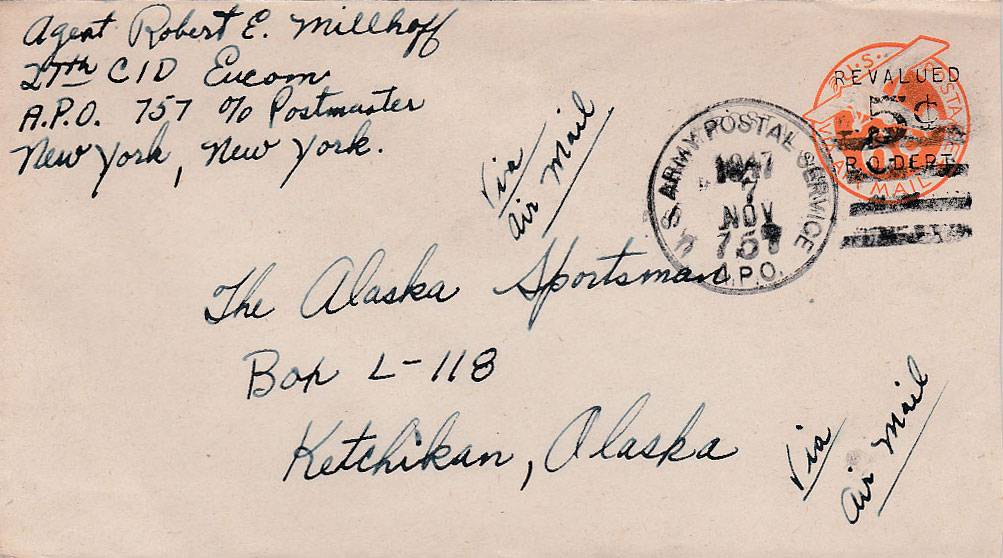 Agent Robert E. Millhoff
27th CID Eucom
A.P.O. 757 c/o Postmaster
New York, New York.
Via
Air Mail
U.S. ARMY POSTAL SERVICE
1947
7
NOV
757
A.P.O.
U.S. POSTAGE
REVALUED
5¢
P.O.DEPT.
AIR MAIL
The Alaska Sportsman
Box L-118
Ketchikan, Alaska
Via
Air Mail